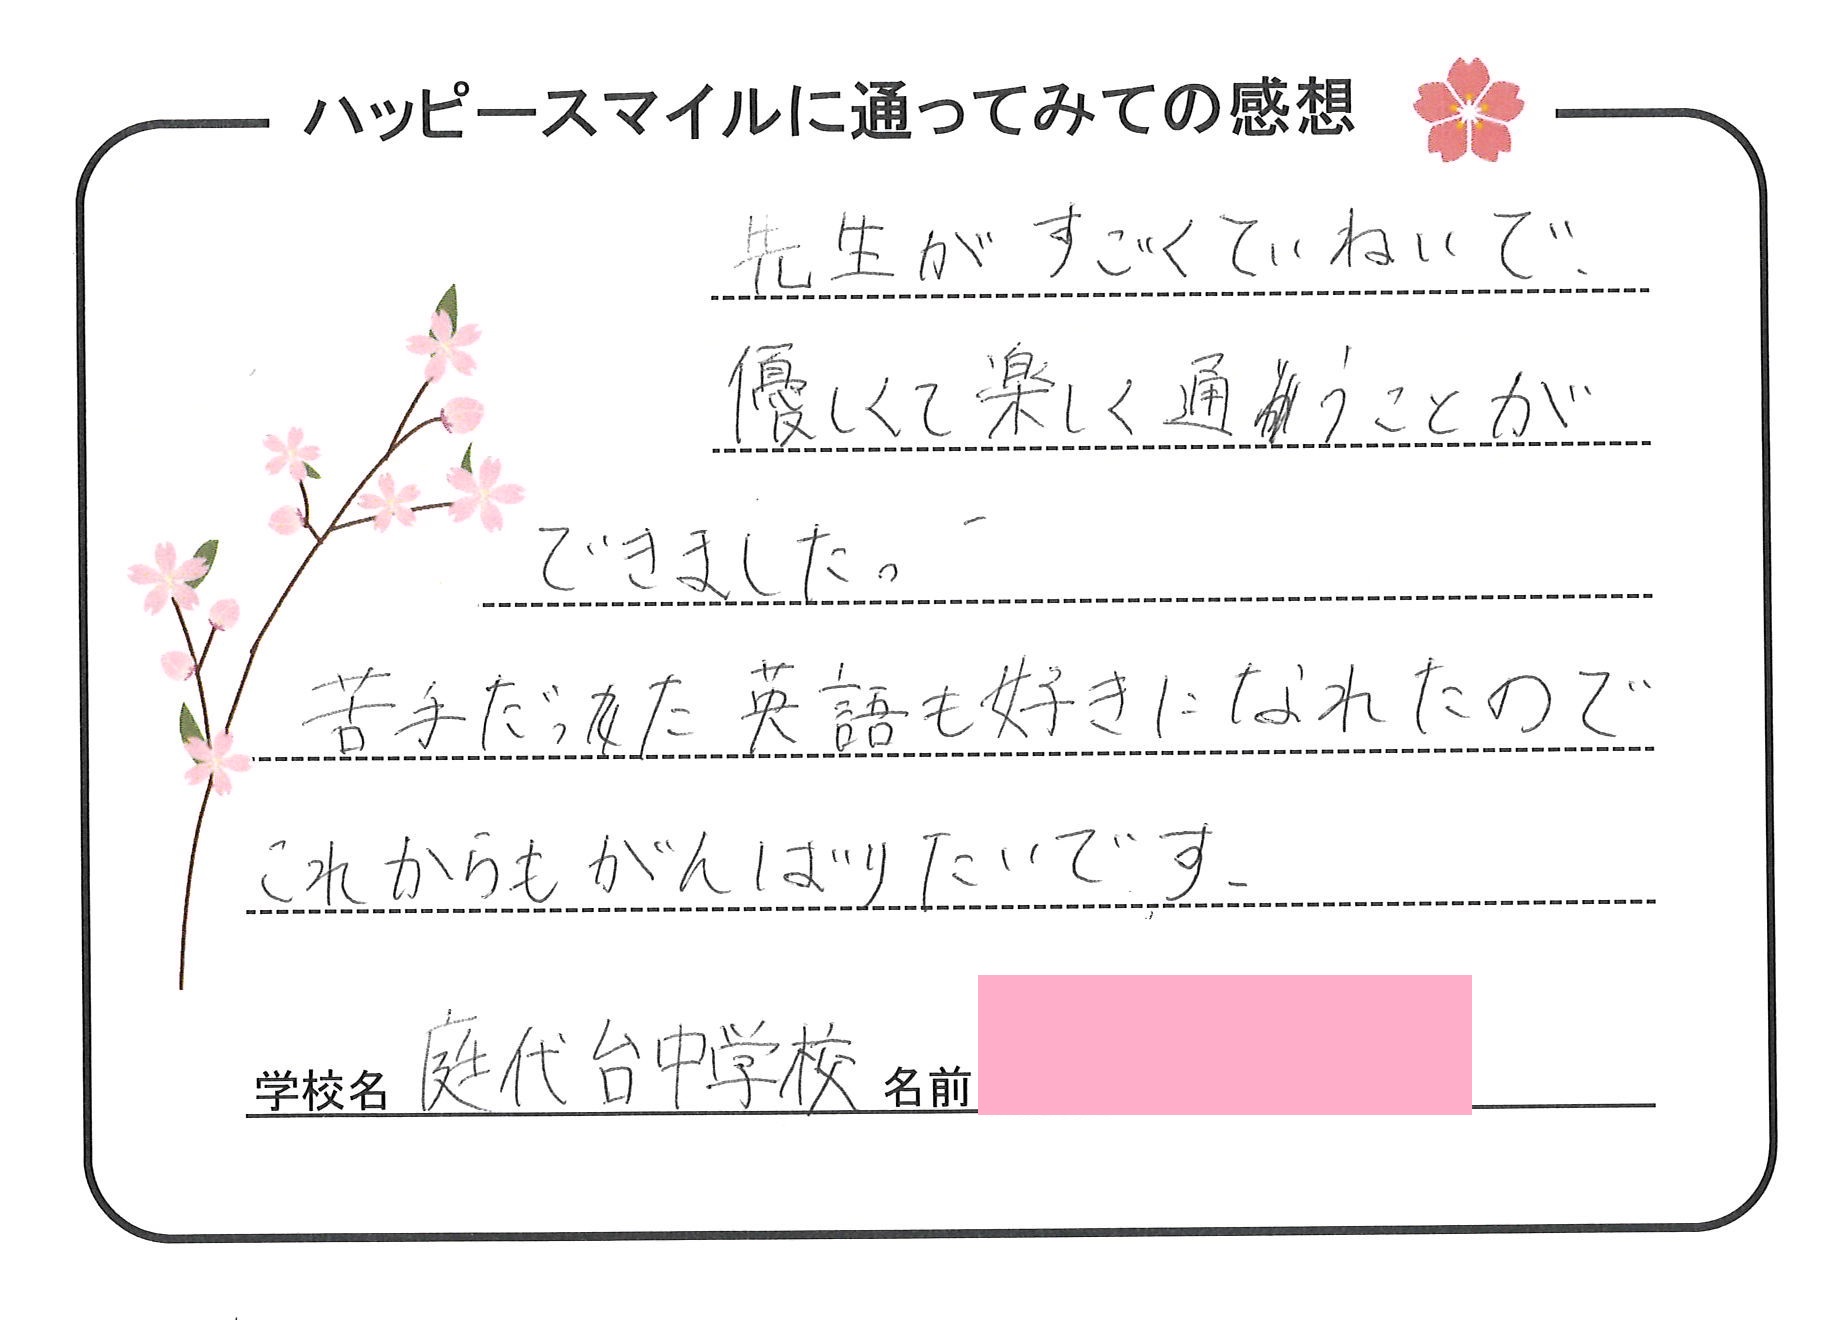 ハッピースマイルに通ってみての感想
先生がすごくていねいで、
優しくて楽しく通うことが
できました。
苦手だった英語も好きになれたので
これからもがんばりたいです。
学校名 庭代台中学校 名前